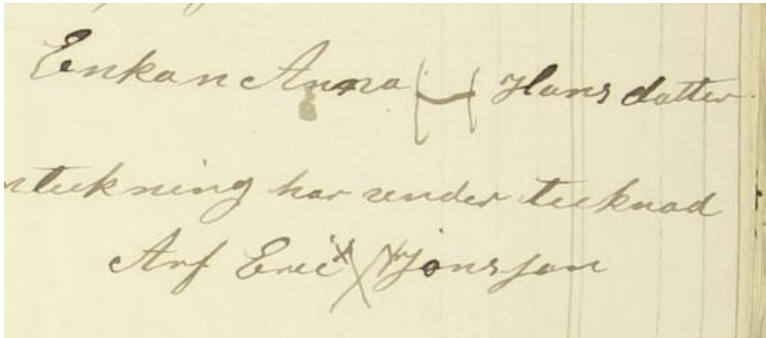 Enkan Anna Hans dotter
ntekning har under tecknad
Arf Eric Jönsson